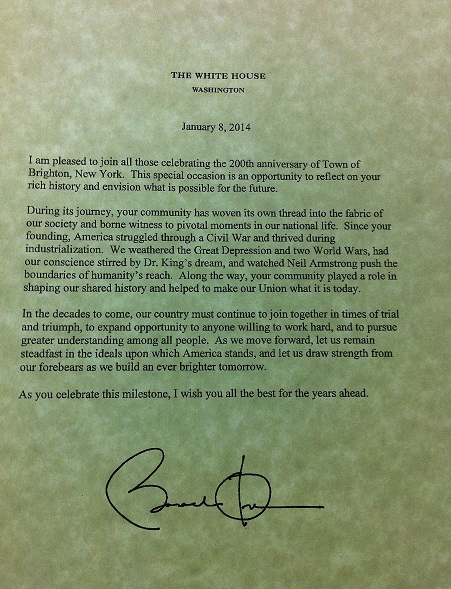 THE WHITE HOUSE
WASHINGTON
January 8, 2014
I am pleased to join all those celebrating the 200th anniversary of Town of
Brighton, New York. This special occasion is an opportunity to reflect on your
rich history and envision what is possible for the future.
During its journey, your community has woven its own thread into the fabric of
our society and borne witness to pivotal moments in our national life. Since your
founding, America struggled through a Civil War and thrived during
industrialization. We weathered the Great Depression and two World Wars, had
our conscience stirred by Dr. King's dream, and watched Neil Armstrong push the
boundaries of humanity's reach. Along the way, your community played a role in
shaping our shared history and helped to make our Union what it is today.
In the decades to come, our country must continue to join together in times of trial
and triumph, to expand opportunity to anyone willing to work hard, and to pursue
greater understanding among all people. As we move forward, let us remain
steadfast in the ideals upon which America stands, and let us draw strength from
our forebears as we build an ever brighter tomorrow.
As you celebrate this milestone, I wish you all the best for the years ahead.